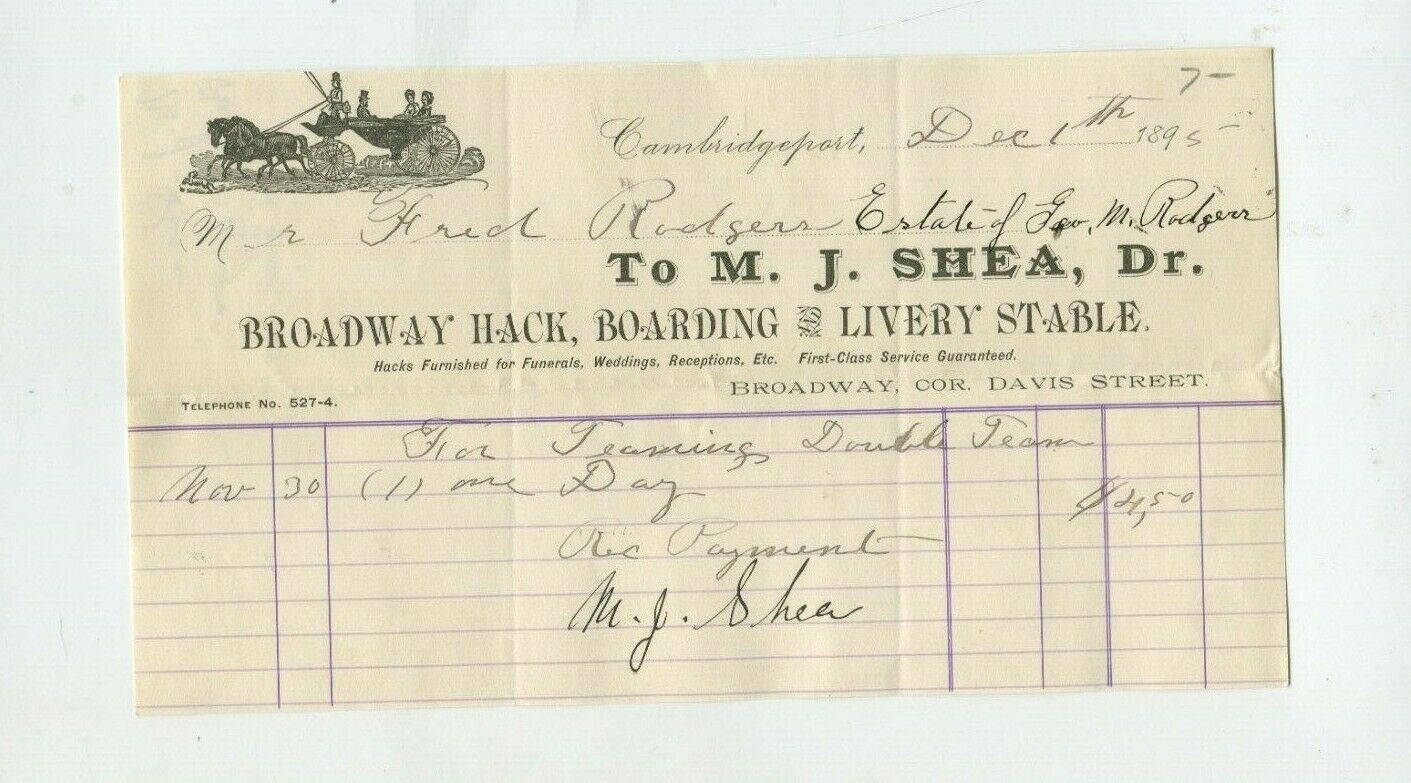 7-
Cambridgeport, Dec 1th 1895
Mr Fred Rodgers Estate of Geo. M. Rodgers
To M. J. SHEA, Dr.
BROADWAY HACK, BOARDING AND LIVERY STABLE.
Hacks Furnished for Funerals, Weddings, Receptions, Etc. First-Class Service Guaranteed.
BROADWAY, COR. DAVIS STREET.
TELEPHONE No. 527-4.
For Teaming Double Team
Nov 30 (1) one Day $4,50
Rec Payment
M. J. Shea